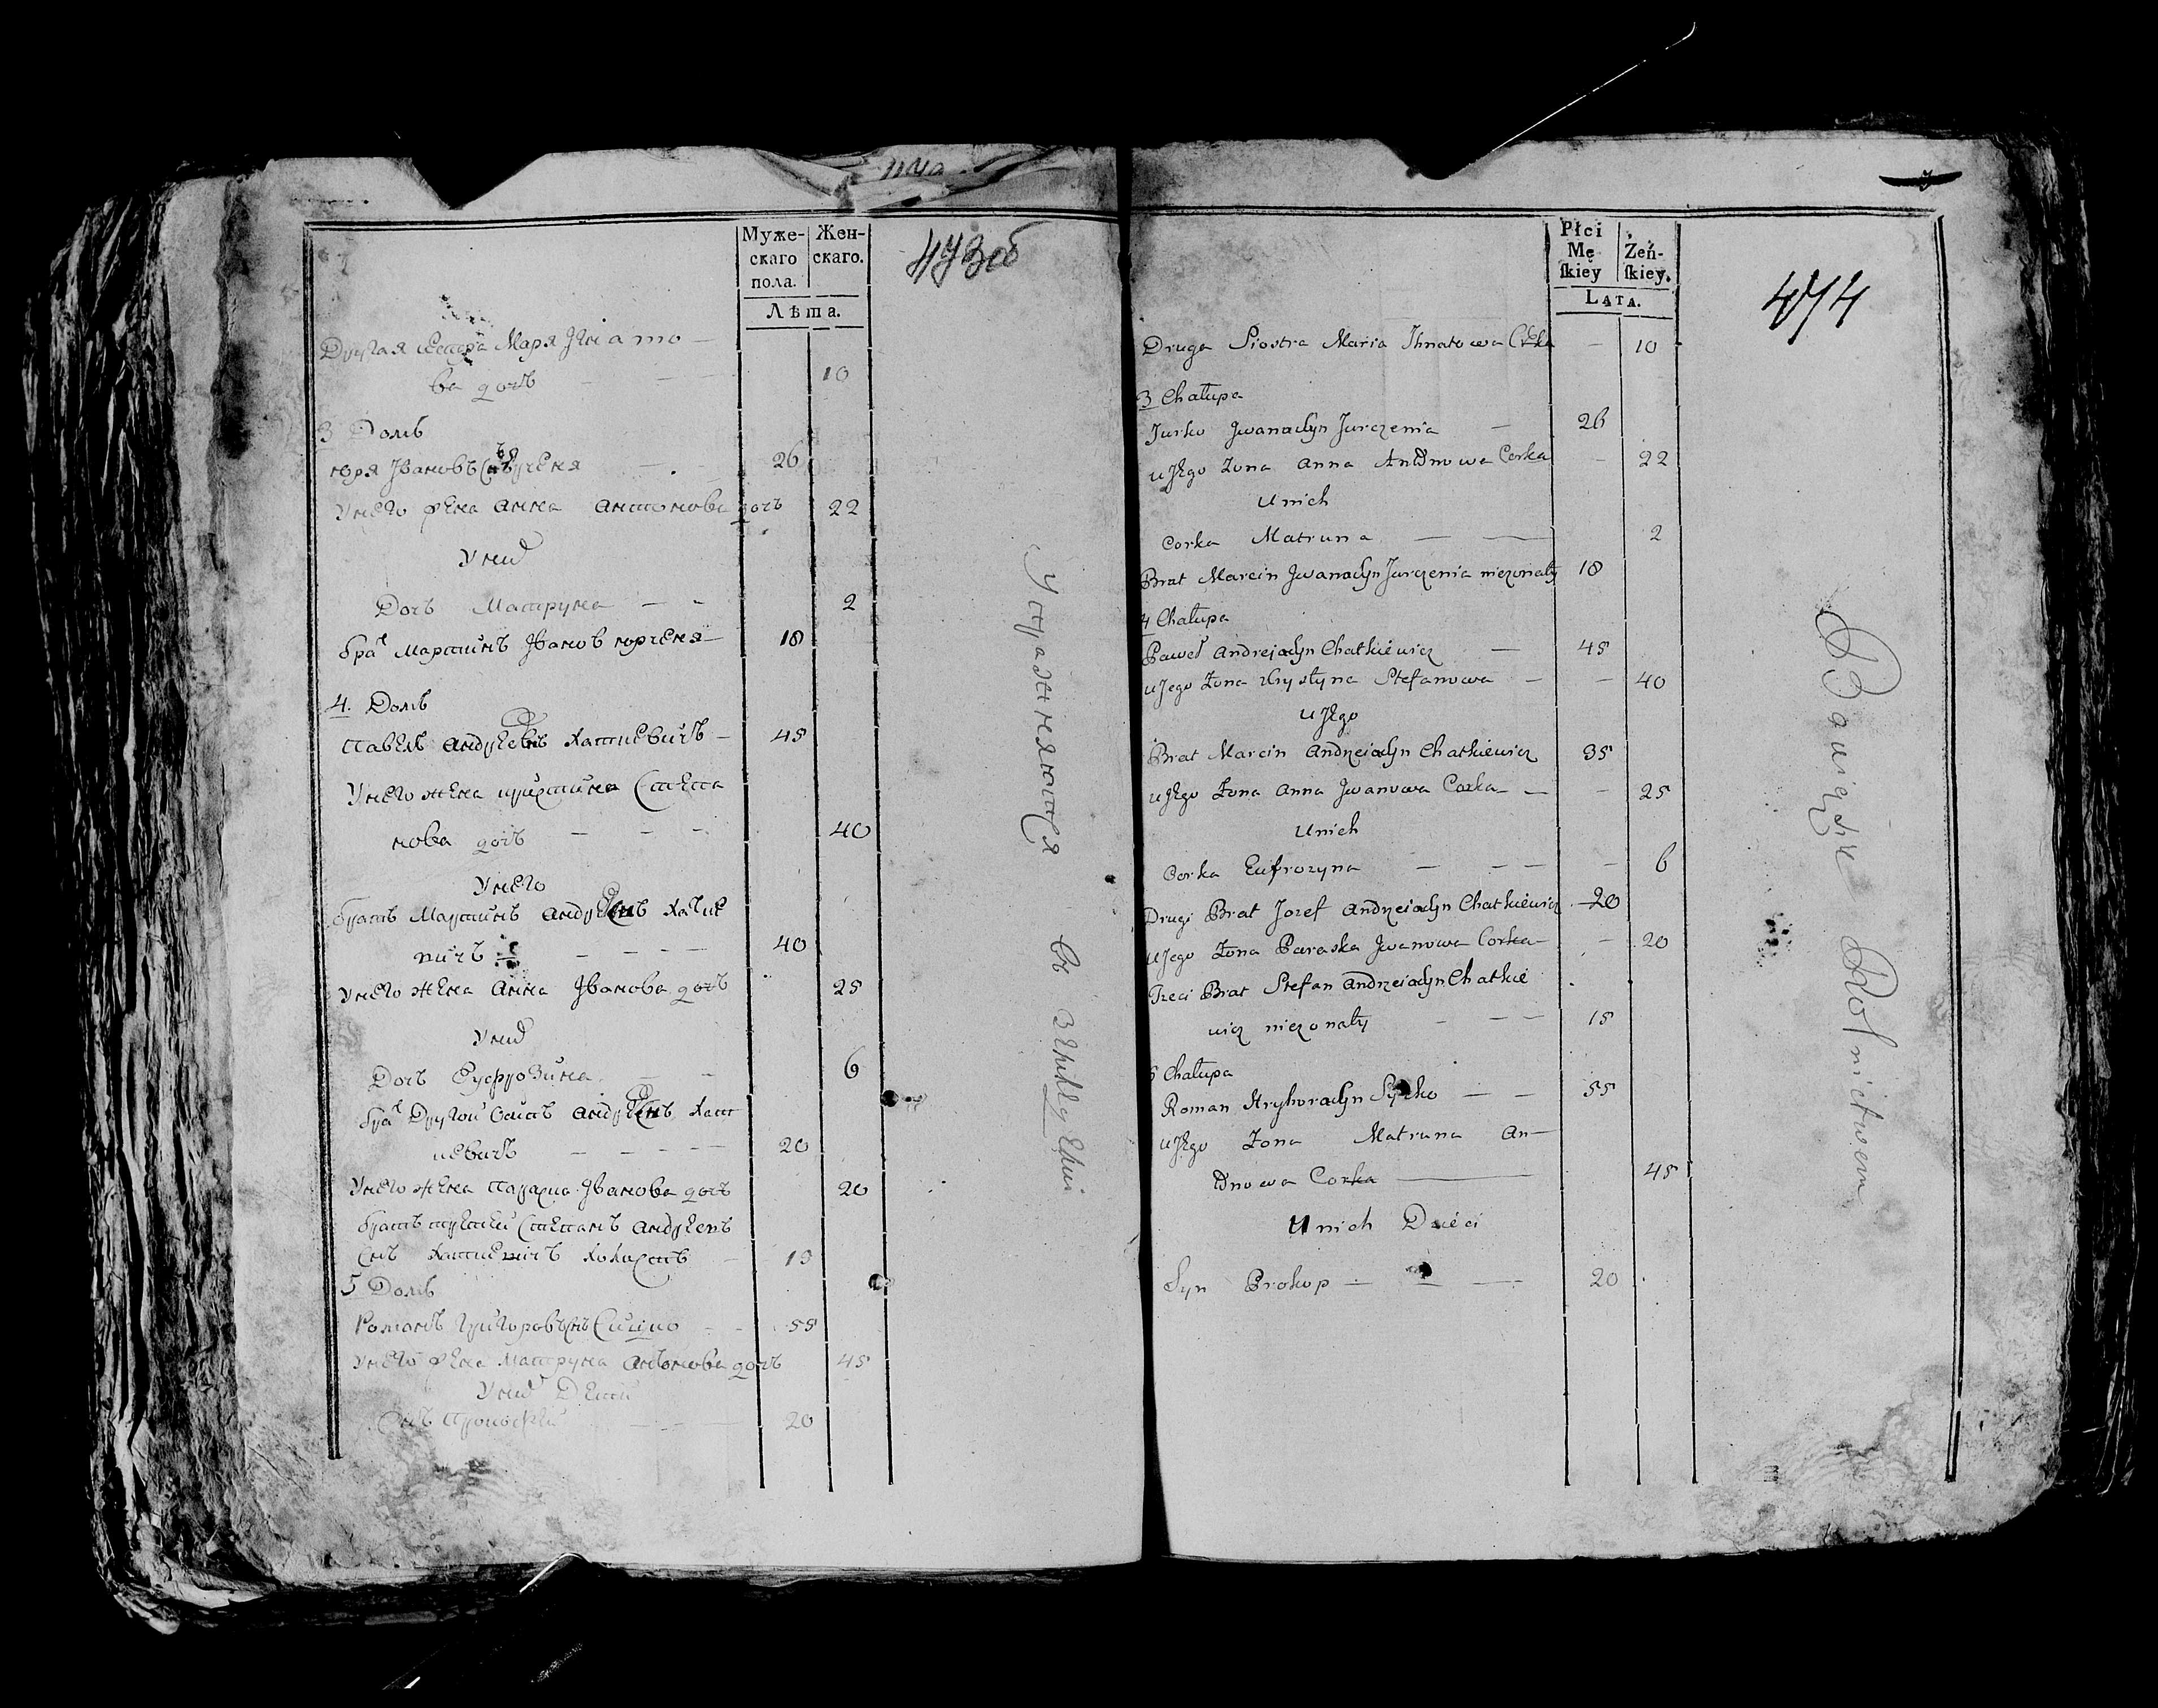 473 об
Муже-
скаго
пола.
Жен-
скаго.
Лѣта.
Другая сестра Маря Игнато
ва дочь 10
3 Домъ
Юря Івановъ Снъ Юрченя 26
У него жена Анна Антонова дочь 22
У них
Дочь Матруна 2
братъ Мартинъ Івановъ Юрченя 18
4. Домъ
Павелъ Андреевъ Снъ Хаткевичъ 45
У него жена Христина Степа
нова дочь 40
У него
братъ Мартинъ Андреевъ Снъ Хатке
вичъ 40
У него жена Анна Іванова дочь 25
У них
Дочь Еуфрозина 6
братъ Другой Осипъ Андреевъ Снъ Хат
кевичъ 20
У него жена Параска Іванова дочь 20
братъ третей Степанъ Андреевъ
Снъ Хаткевичъ холостъ 15
5 Домъ
Романъ Григоровъ Снъ Сичко 55
У него жена Матруна Антонова дочь 45
У них Дети
Снъ Прокофей 20
Упражняются въ Земледелии
474
Płci
Mę
ſkiey
Żeń-
ſkiey.
Lata.
Druga Siostra Maria Ihnatowa Corka – 10
3 Chałupa
Jurko Jwanadyn Jurczenia – 26
u Jego Żona Anna Antonowa Corka – 22
u nich
Corka Matruna – 2
Brat Marcin Jwanadyn Jurczenia nieżonaty 18
4 Chałupa
Paweł Andrejadyn Chatkiewicz – 45
u Jego Żona Chrystyna Stefanowa – 40
u Jego
Brat Marcin Andrzeiadyn Chatkiewicz 35
u Jego Żona Anna Jwanowa Corka – 25
u nich
Corka Eufrozyna – 6
Drugi Brat Jozef Andrzeiadyn Chatkiewicz – 20
u Jego Żona Paraska Jwanowa Corka – 20
Trzeci Brat Stefan Andrzeiadyn Chatkie
wicz nieżonaty – 15
5 Chałupa
Roman Hryhoradyn Syczko – 55
u Jego Żona Matruna An–
tonowa Corka – 45
u nich Dzieci
Syn Prokop – 20
Bawią się Rolnictwem